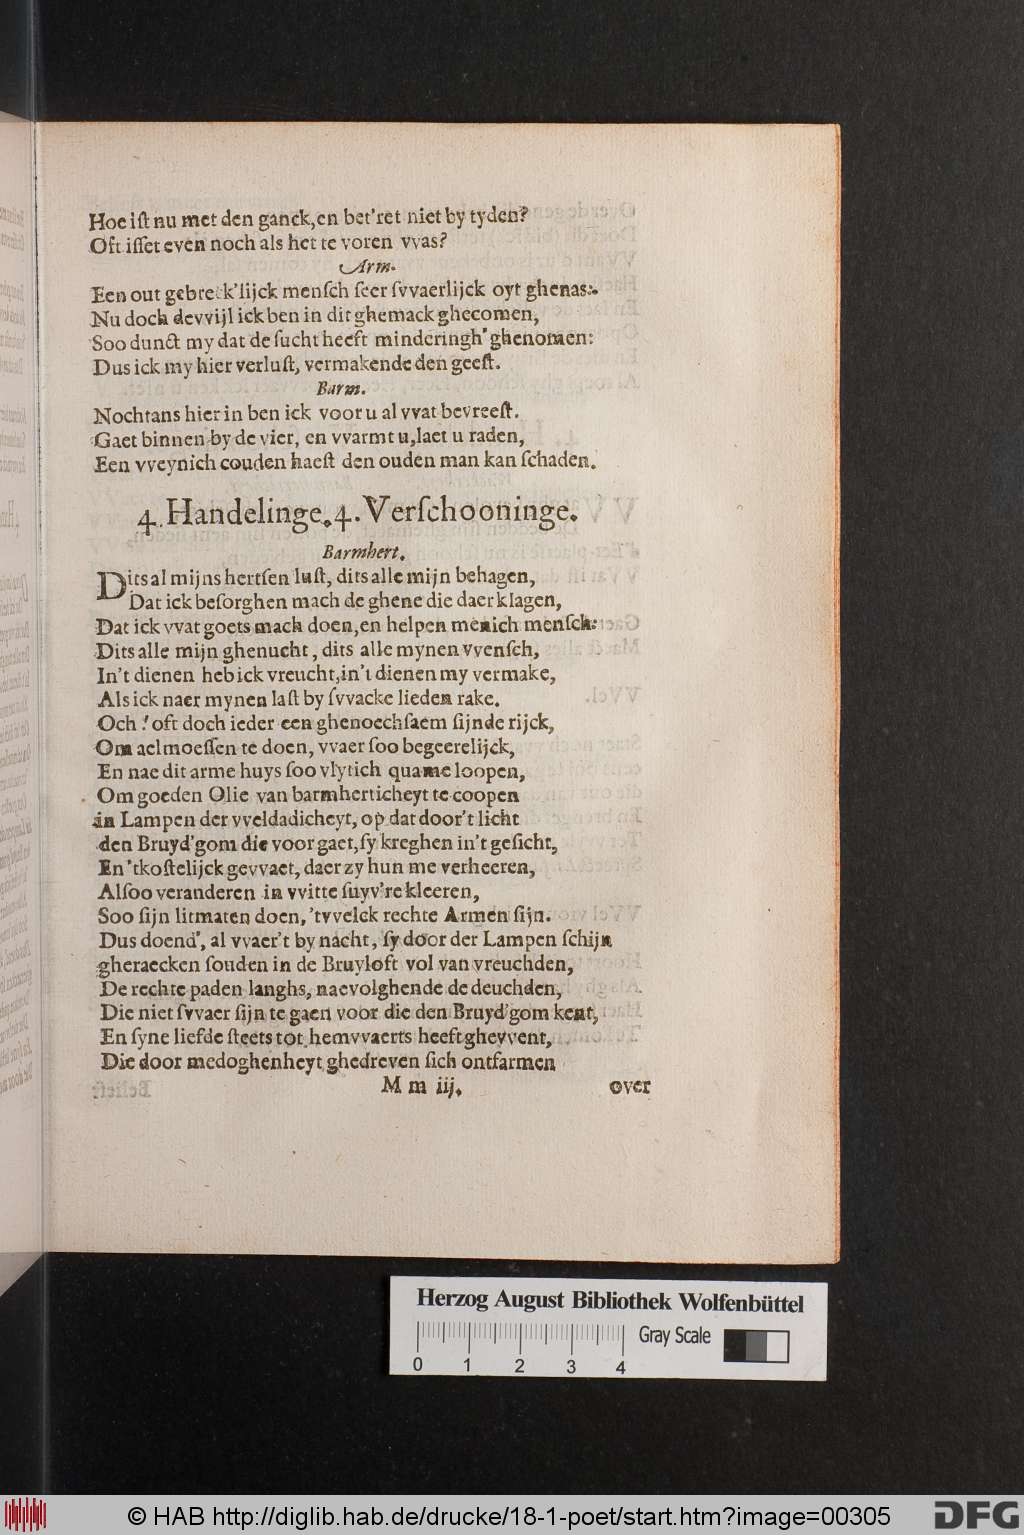 Hoe iſt nu met den ganck, en bet'ret niet by tyden?
Oft iſſet even noch als het te voren vvas?
Arm.
Een out gebreck'lijck menſch ſeer ſvvaerlijck oyt ghenas:
Nu doch devvijl ick ben in dit ghemack ghecomen,
Soo dunct my dat de ſucht heeft minderingh' ghenomen:
Dus ick my hier verluſt, vermakende den geeſt.
Barm.
Nochtans hier in ben ick voor u al vvat bevreeſt.
Gaet binnen by de vier, en vvarmt u, laet u raden,
Een vveynich couden haeſt den ouden man kan ſchaden.
4. Handelinge. 4. Verſchooninge.
Barmhert.
Dits al mijns hertſen luſt, dits alle mijn behagen,
Dat ick beſorghen mach de ghene die daer klagen,
Dat ick vvat goets mach doen, en helpen menich menſch:
Dits alle mijn ghenucht, dits alle mynen vvenſch,
In't dienen heb ick vreucht, in't dienen my vermake,
Als ick naer mynen laſt by ſvvacke lieden rake.
Och! oft doch ieder een ghenoechſaem ſijnde rijck,
Om aelmoeſſen te doen, vvaer ſoo begeerelijck,
En nae dit arme huys ſoo vlytich quame loopen,
Om goeden Olie van barmherticheyt te coopen
in Lampen der vveldadicheyt, op dat door't licht
den Bruyd'gom die voor gaet, ſy kreghen in't geſicht,
En 'tkoſtelijck gevvaet, daer zy hun me verheeren,
Alſoo veranderen in vvitte ſuyv're kleeren,
Soo ſijn litmaten doen, 'tvvelck rechte Armen ſijn.
Dus doend', al vvaer't by nacht, ſy door der Lampen ſchijn
gheraecken ſouden in de Bruyloft vol van vreuchden,
De rechte paden langhs, naevolghende de deuchden,
Die niet ſvvaer ſijn te gaen voor die den Bruyd'gom kent,
En ſyne liefde ſteets tot hemvvaerts heeft ghevvent,
Die door medoghenheyt ghedreven ſich ontfarmen
M m iij.
over
Herzog August Bibliothek Wolfenbüttel
Gray Scale
0 1 2 3 4
© HAB http://diglib.hab.de/drucke/18-1-poet/start.htm?image=00305
DFG